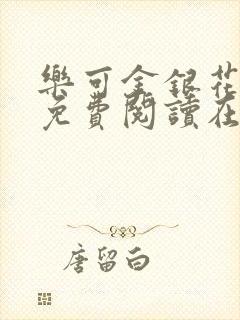 樂可金銀花
免費閱讀在
唐留白